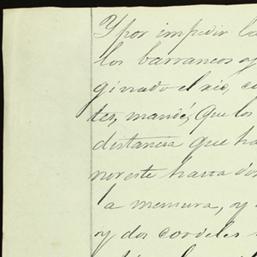 Y por impedir la
los barrancos y
girado el rio, 
tes, mandé, Que los
distancia que ha
noreste hasta
la mensura, y
y dos cordeles